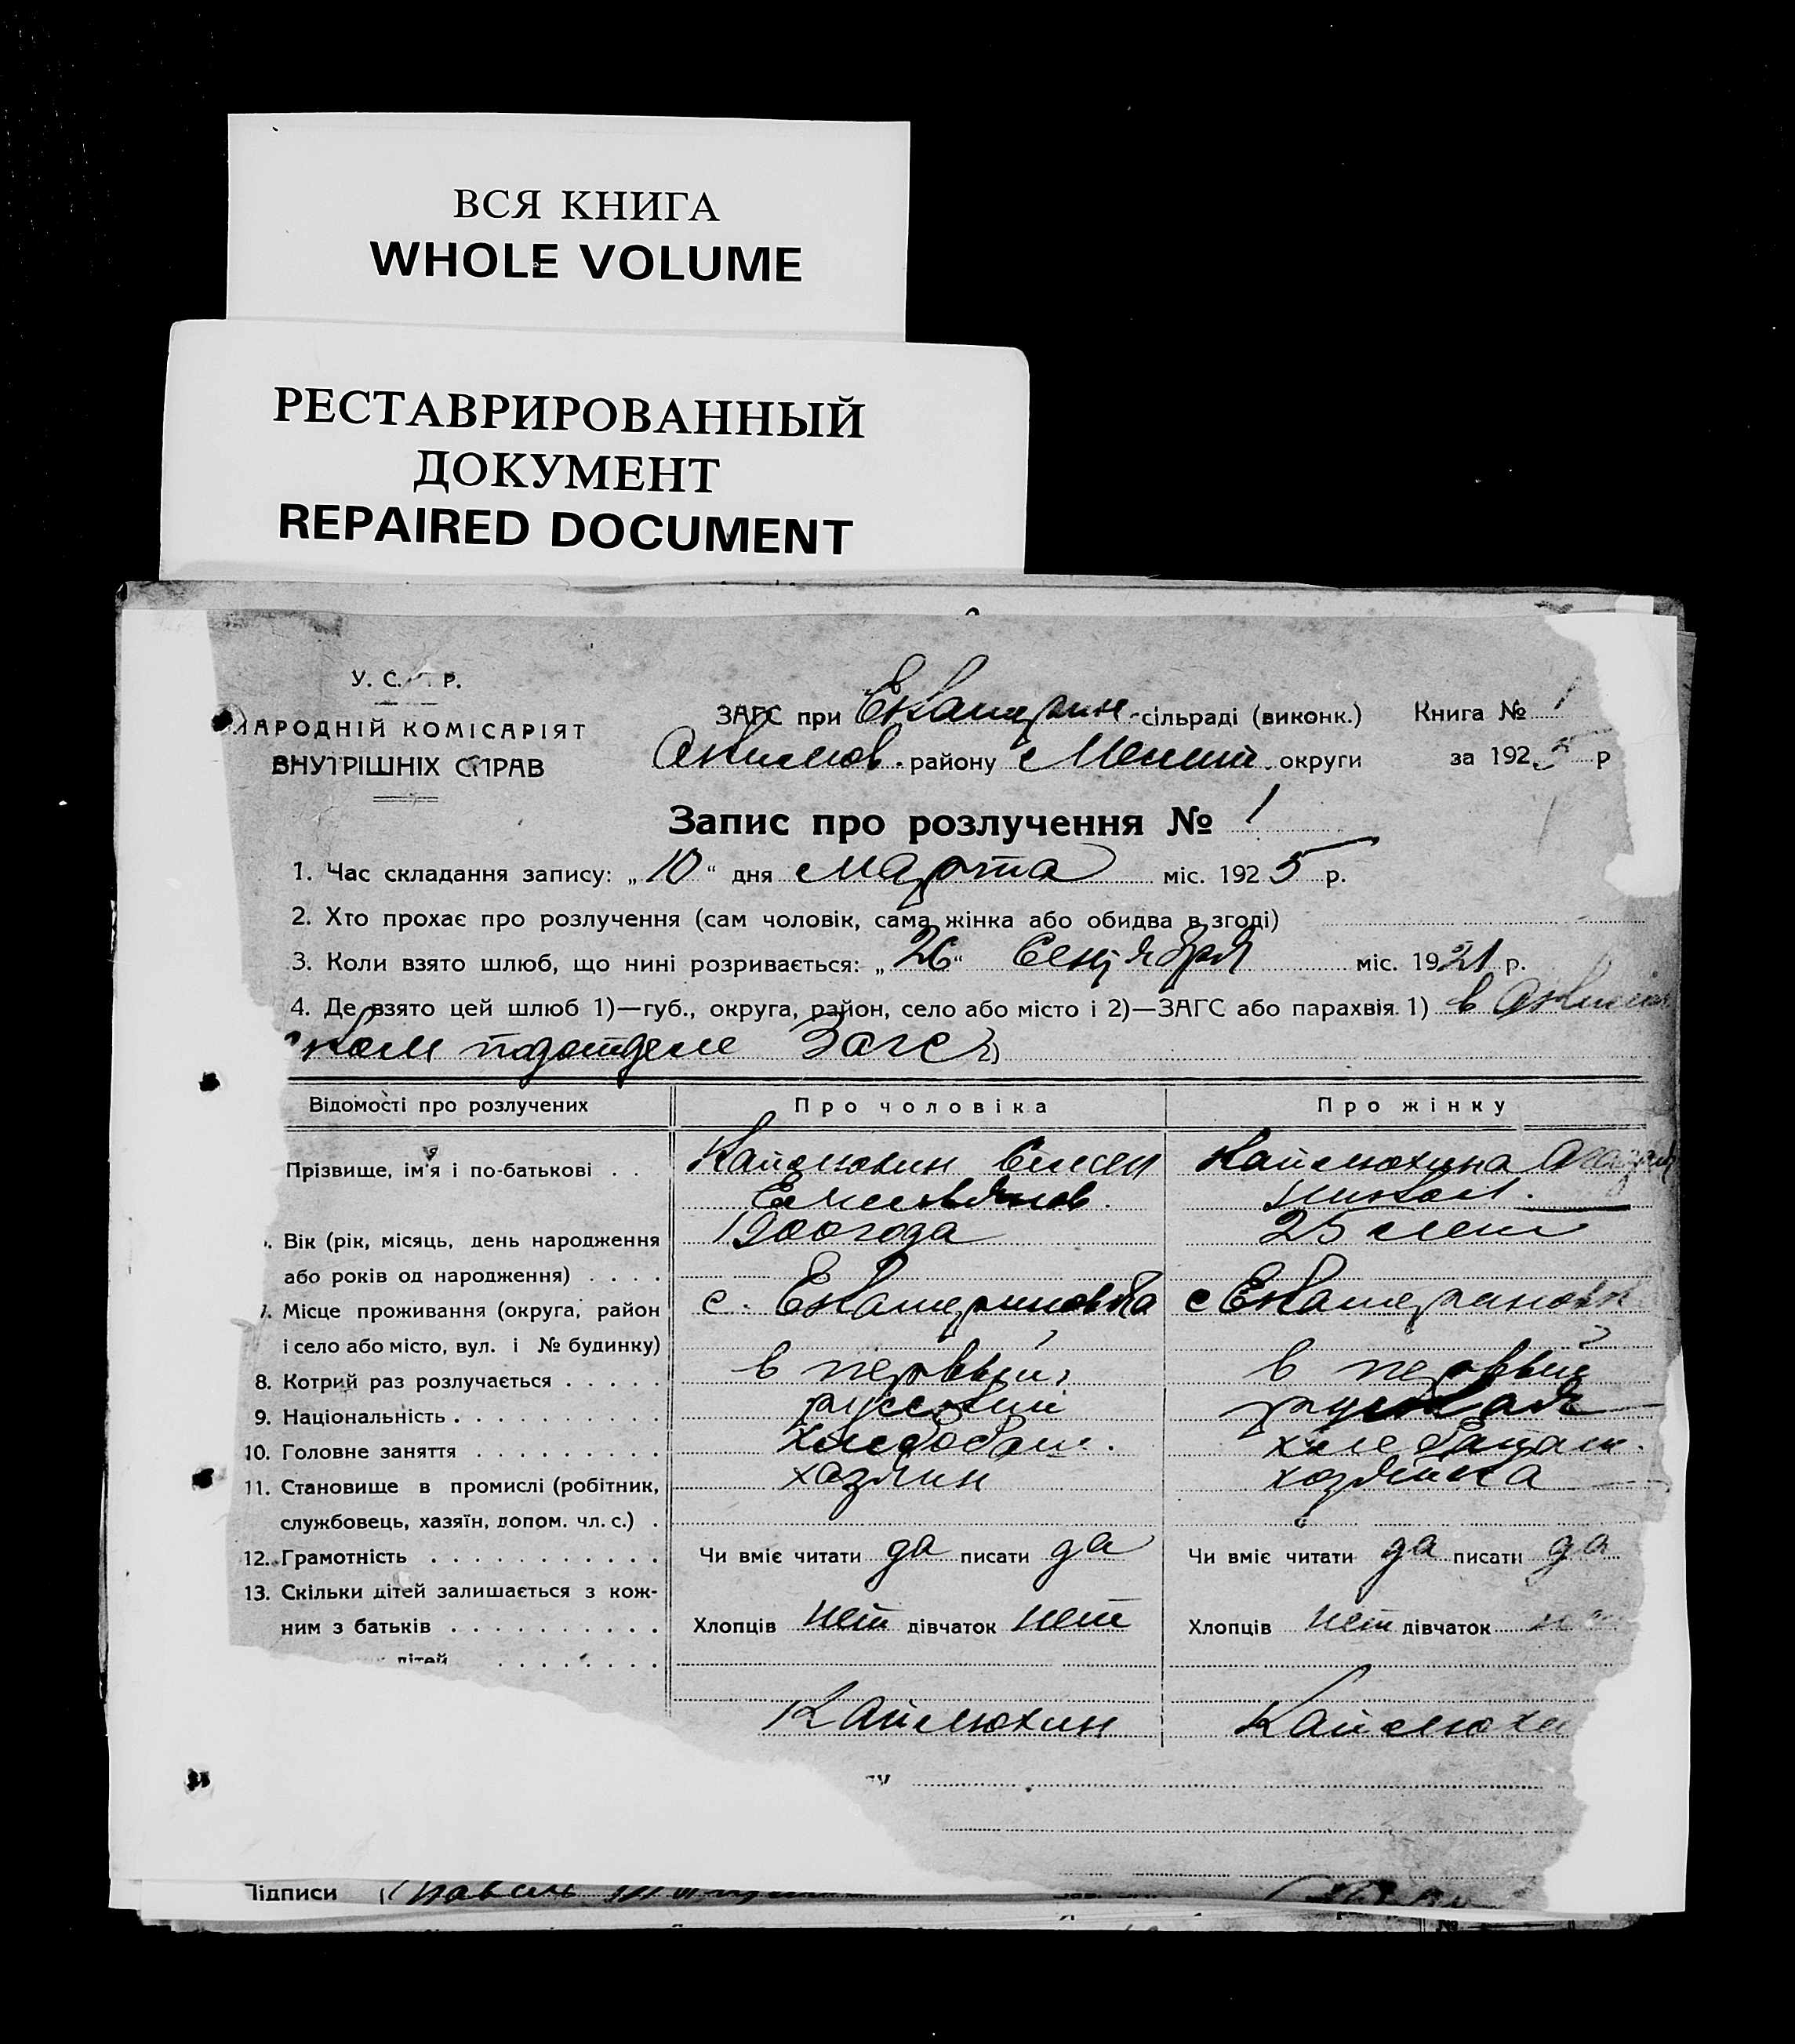 ВСЯ КНИГА
WHOLE VOLUME
РЕСТАВРИРОВАННЫЙ
ДОКУМЕНТ
REPAIRED DOCUMENT
У. С. Р.
НАРОДНІЙ КОМІСАРІЯТ
ВНУТРІШНІХ СПРАВ
ЗАГС при Екатерин. сільраді (виконк.) Книга № 1
Акимов. району Мелит. округи за 1925 р
Запис про розлучення № 1
1. Час складання запису: „10“ дня Марта міс. 1925 р.
2. Хто прохає про розлучення (сам чоловік, сама жінка або обидва в згоді)
3. Коли взято шлюб, що нині розривається: „26“ Сентября міс. 1921 р.
4. Де взято цей шлюб 1)—губ., округа, район, село або місто і 2)—ЗАГС або парахвія. 1) в Акимов
ском подотделе Загс 2)
Відомості про розлучених Про чоловіка Про жінку
Прізвище, ім'я і по-батькові . . Каймохин Семен Каймохина
Емельянов. Никол.
Вік (рік, місяць, день народження 1900 года 25 лет
або років од народження) . . . .
Місце проживання (округа, район с. Екатериновка с Екатериновк
і село або місто, вул. і № будинку)
8. Котрий раз розлучається . . . . . в первый в первый
9. Національність . . . . . . . . . . русский русская
10. Головне заняття . . . . . . . . . хлебопаш. хлебопаш.
11. Становище в промислі (робітник, хозяин хозяйка
службовець, хазяїн, допом. чл. с.) .
12. Грамотність . . . . . . . . . . . Чи вміє читати да писати да Чи вміє читати да писати да
13. Скільки дітей залишається з кож-
ним з батьків . . . . . . . . . . Хлопців нет дівчаток нет Хлопців нет дівчаток
дітей . . . . . . . .
Каймохин Каймохи
Підписи
№